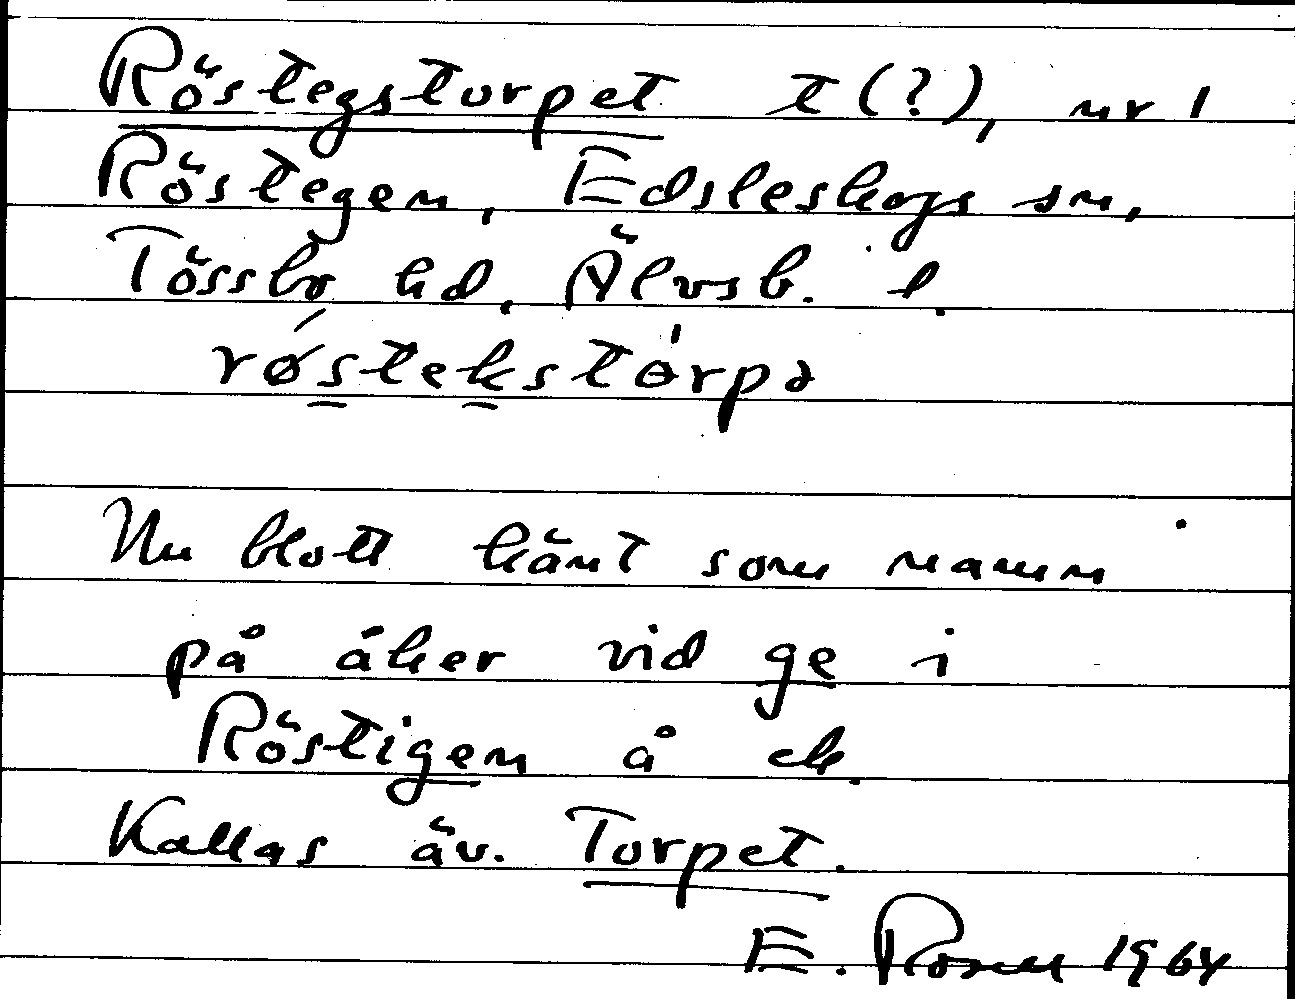 Röstegstorpet t (?), nr 1
Röstegen, Edsleskogs sn,
Tössbo hd. Älvsb. l.
røstekstòrpə
Nu blott känt som namn
på åker vid ge i
Röstigen å ek.
Kallas äv. Torpet.
E. Rosell 1964